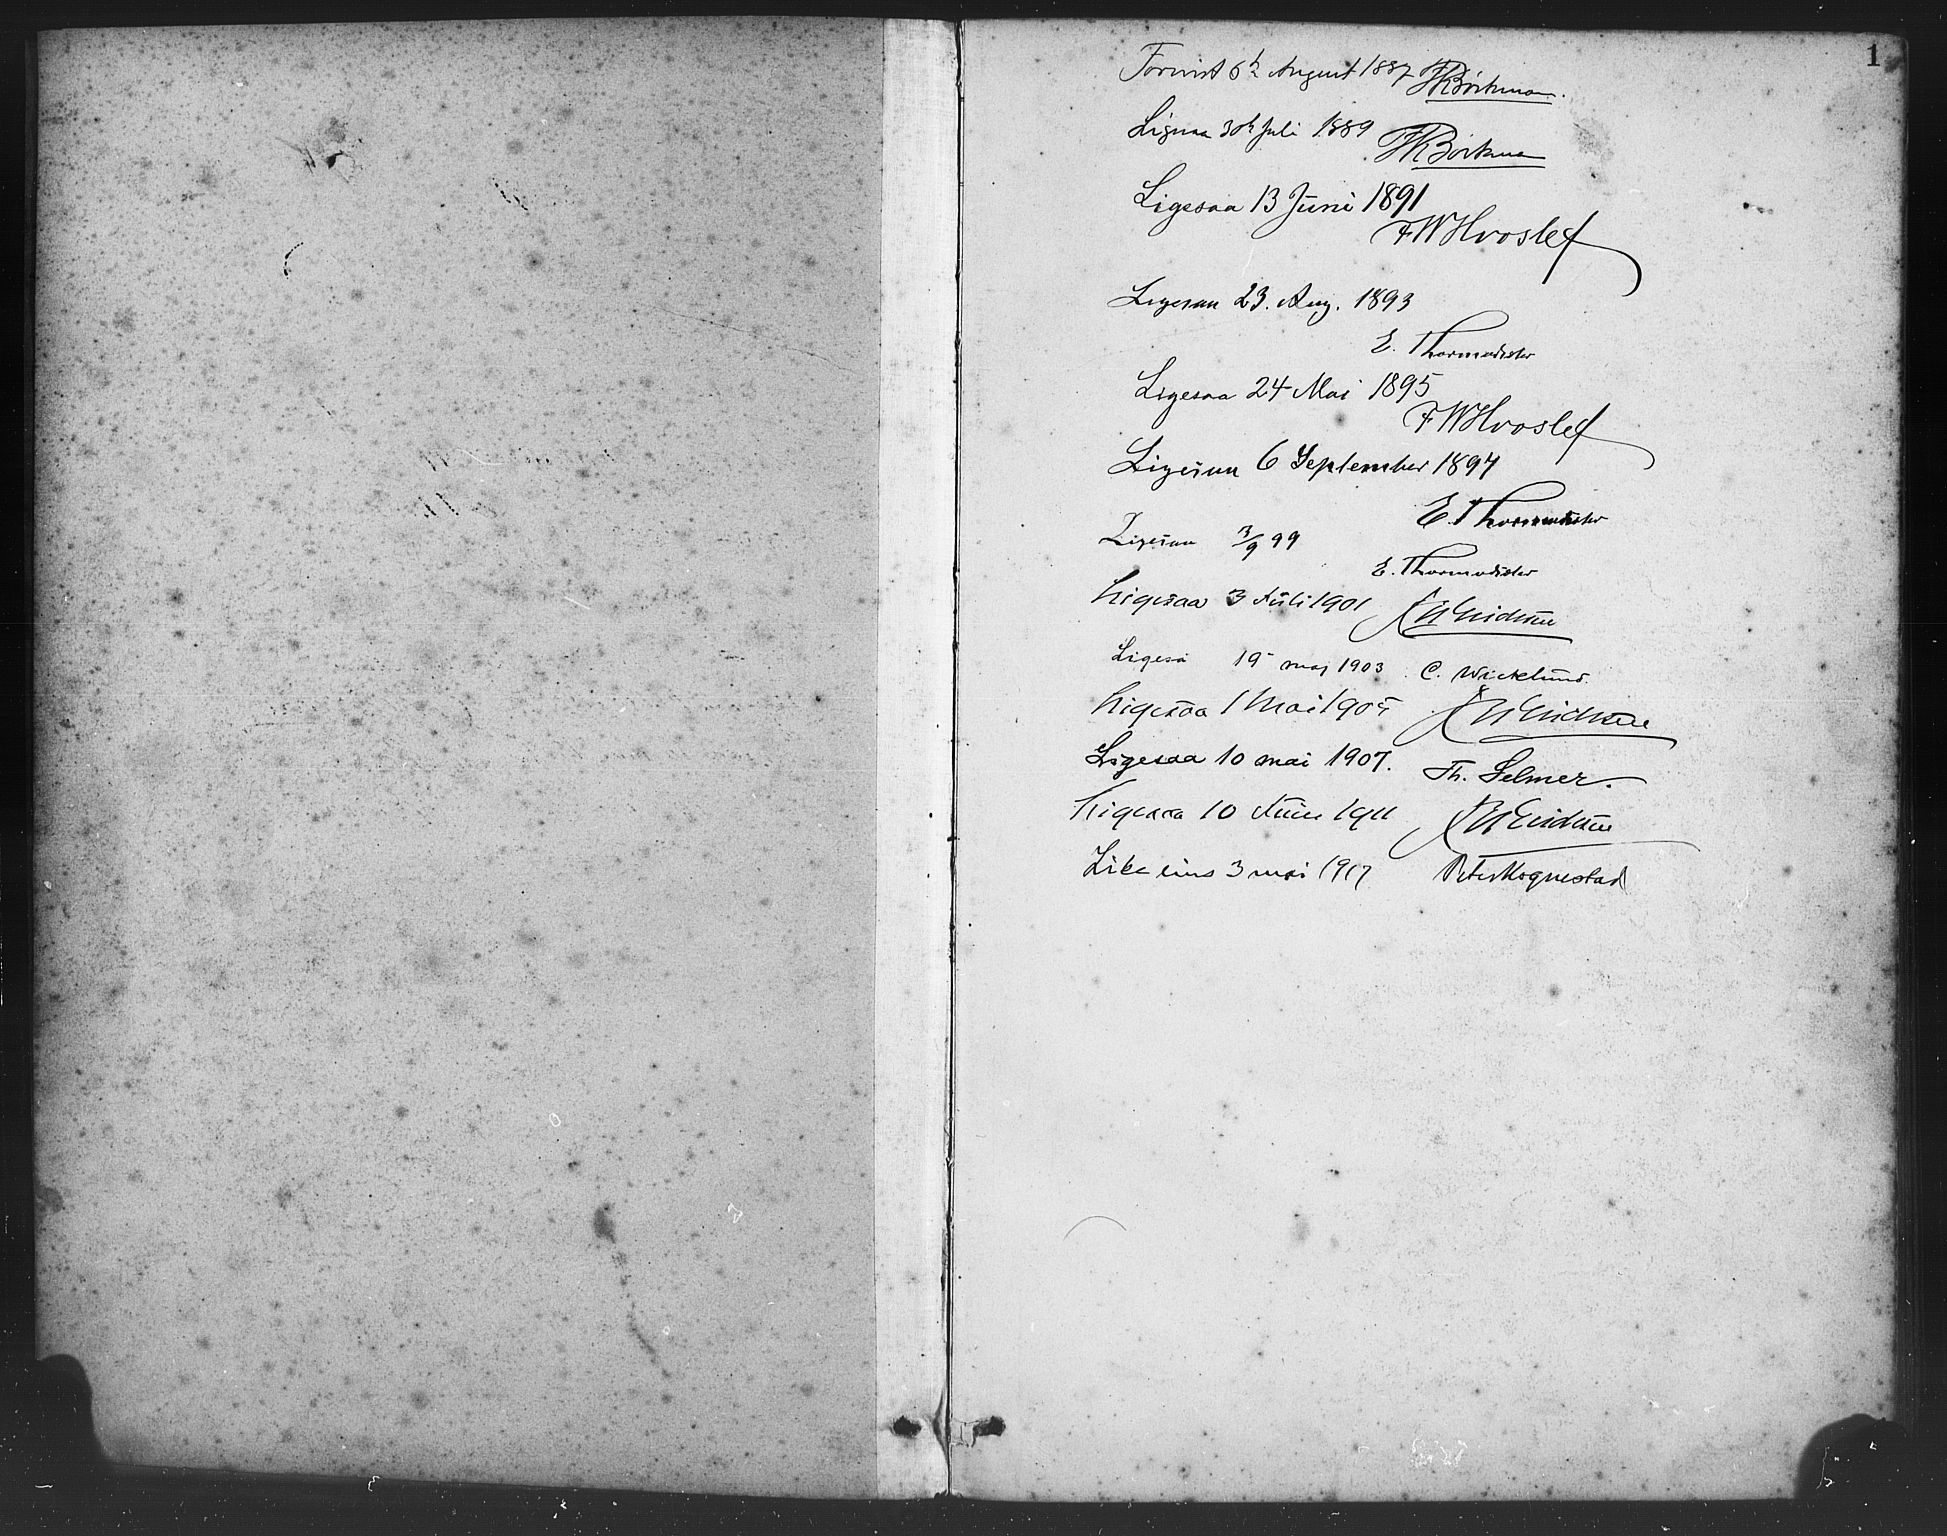 1
Forevist 6te August 1887 JRBörkman.
Ligesaa 30te Juli 1889
JRBörkman
Ligesaa 13 Juni 1891
FWHvoslef
Ligesaa 23. Aug. 1893
E. Thormodsæter
Ligesaa 24 Mai 1895
FWHvoslef
Ligesaa 6 September 1897
E. Thormodsæter
Ligesaa 3/9 99
E. Thormodsæter
Ligesaa 3 Juli 1901
Ligeså 19 maj 1903 C. Wicklund.
Ligesaa 1 Mai 1905
Ligesaa 10 mai 1907. Th. Selmer.
Ligesaa 10 Juni 1911
Like eins 3 mai 1917 Peter Hognestad